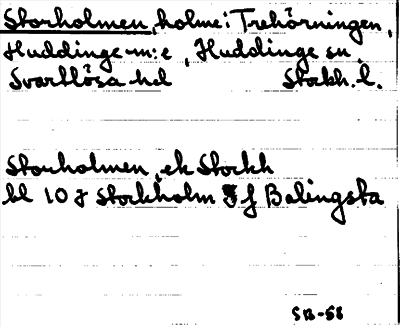 Storholmen, holme i Trehörningen,
Huddinge m:e, Huddinge sn
Svartlösa hd Stockh. l.
Storholmen, ek Stockh
bl 10 J Stockholm f Balingsta